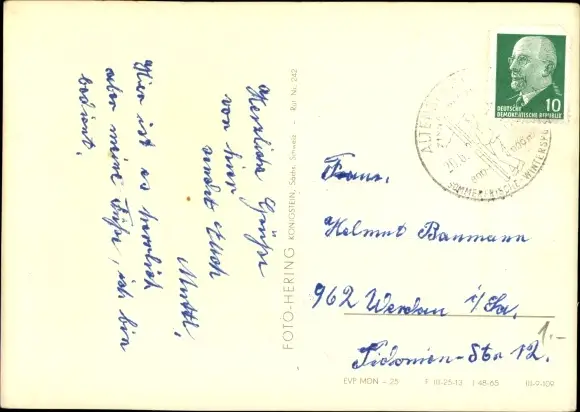 Herzliche Grüße
von hier
sendet Euch
Mutti,
Hier ist es herrlich
aber meine Füße, ich bin
bedient.
FOTO-HERING KÖNIGSTEIN, Sächs. Schweiz – Ruf Nr. 242
DEUTSCHE
DEMOKRATISCHE REPUBLIK
10
ALTENB
800-
900 m
SOMMERFRISCHE WINTERSP
Fam.
Helmut Baumann
962 Werdau i/Sa.
Sidonien-Str 12.
1.-
EVP MDN – 25 F III-25-13 J 48-65 III-9-109